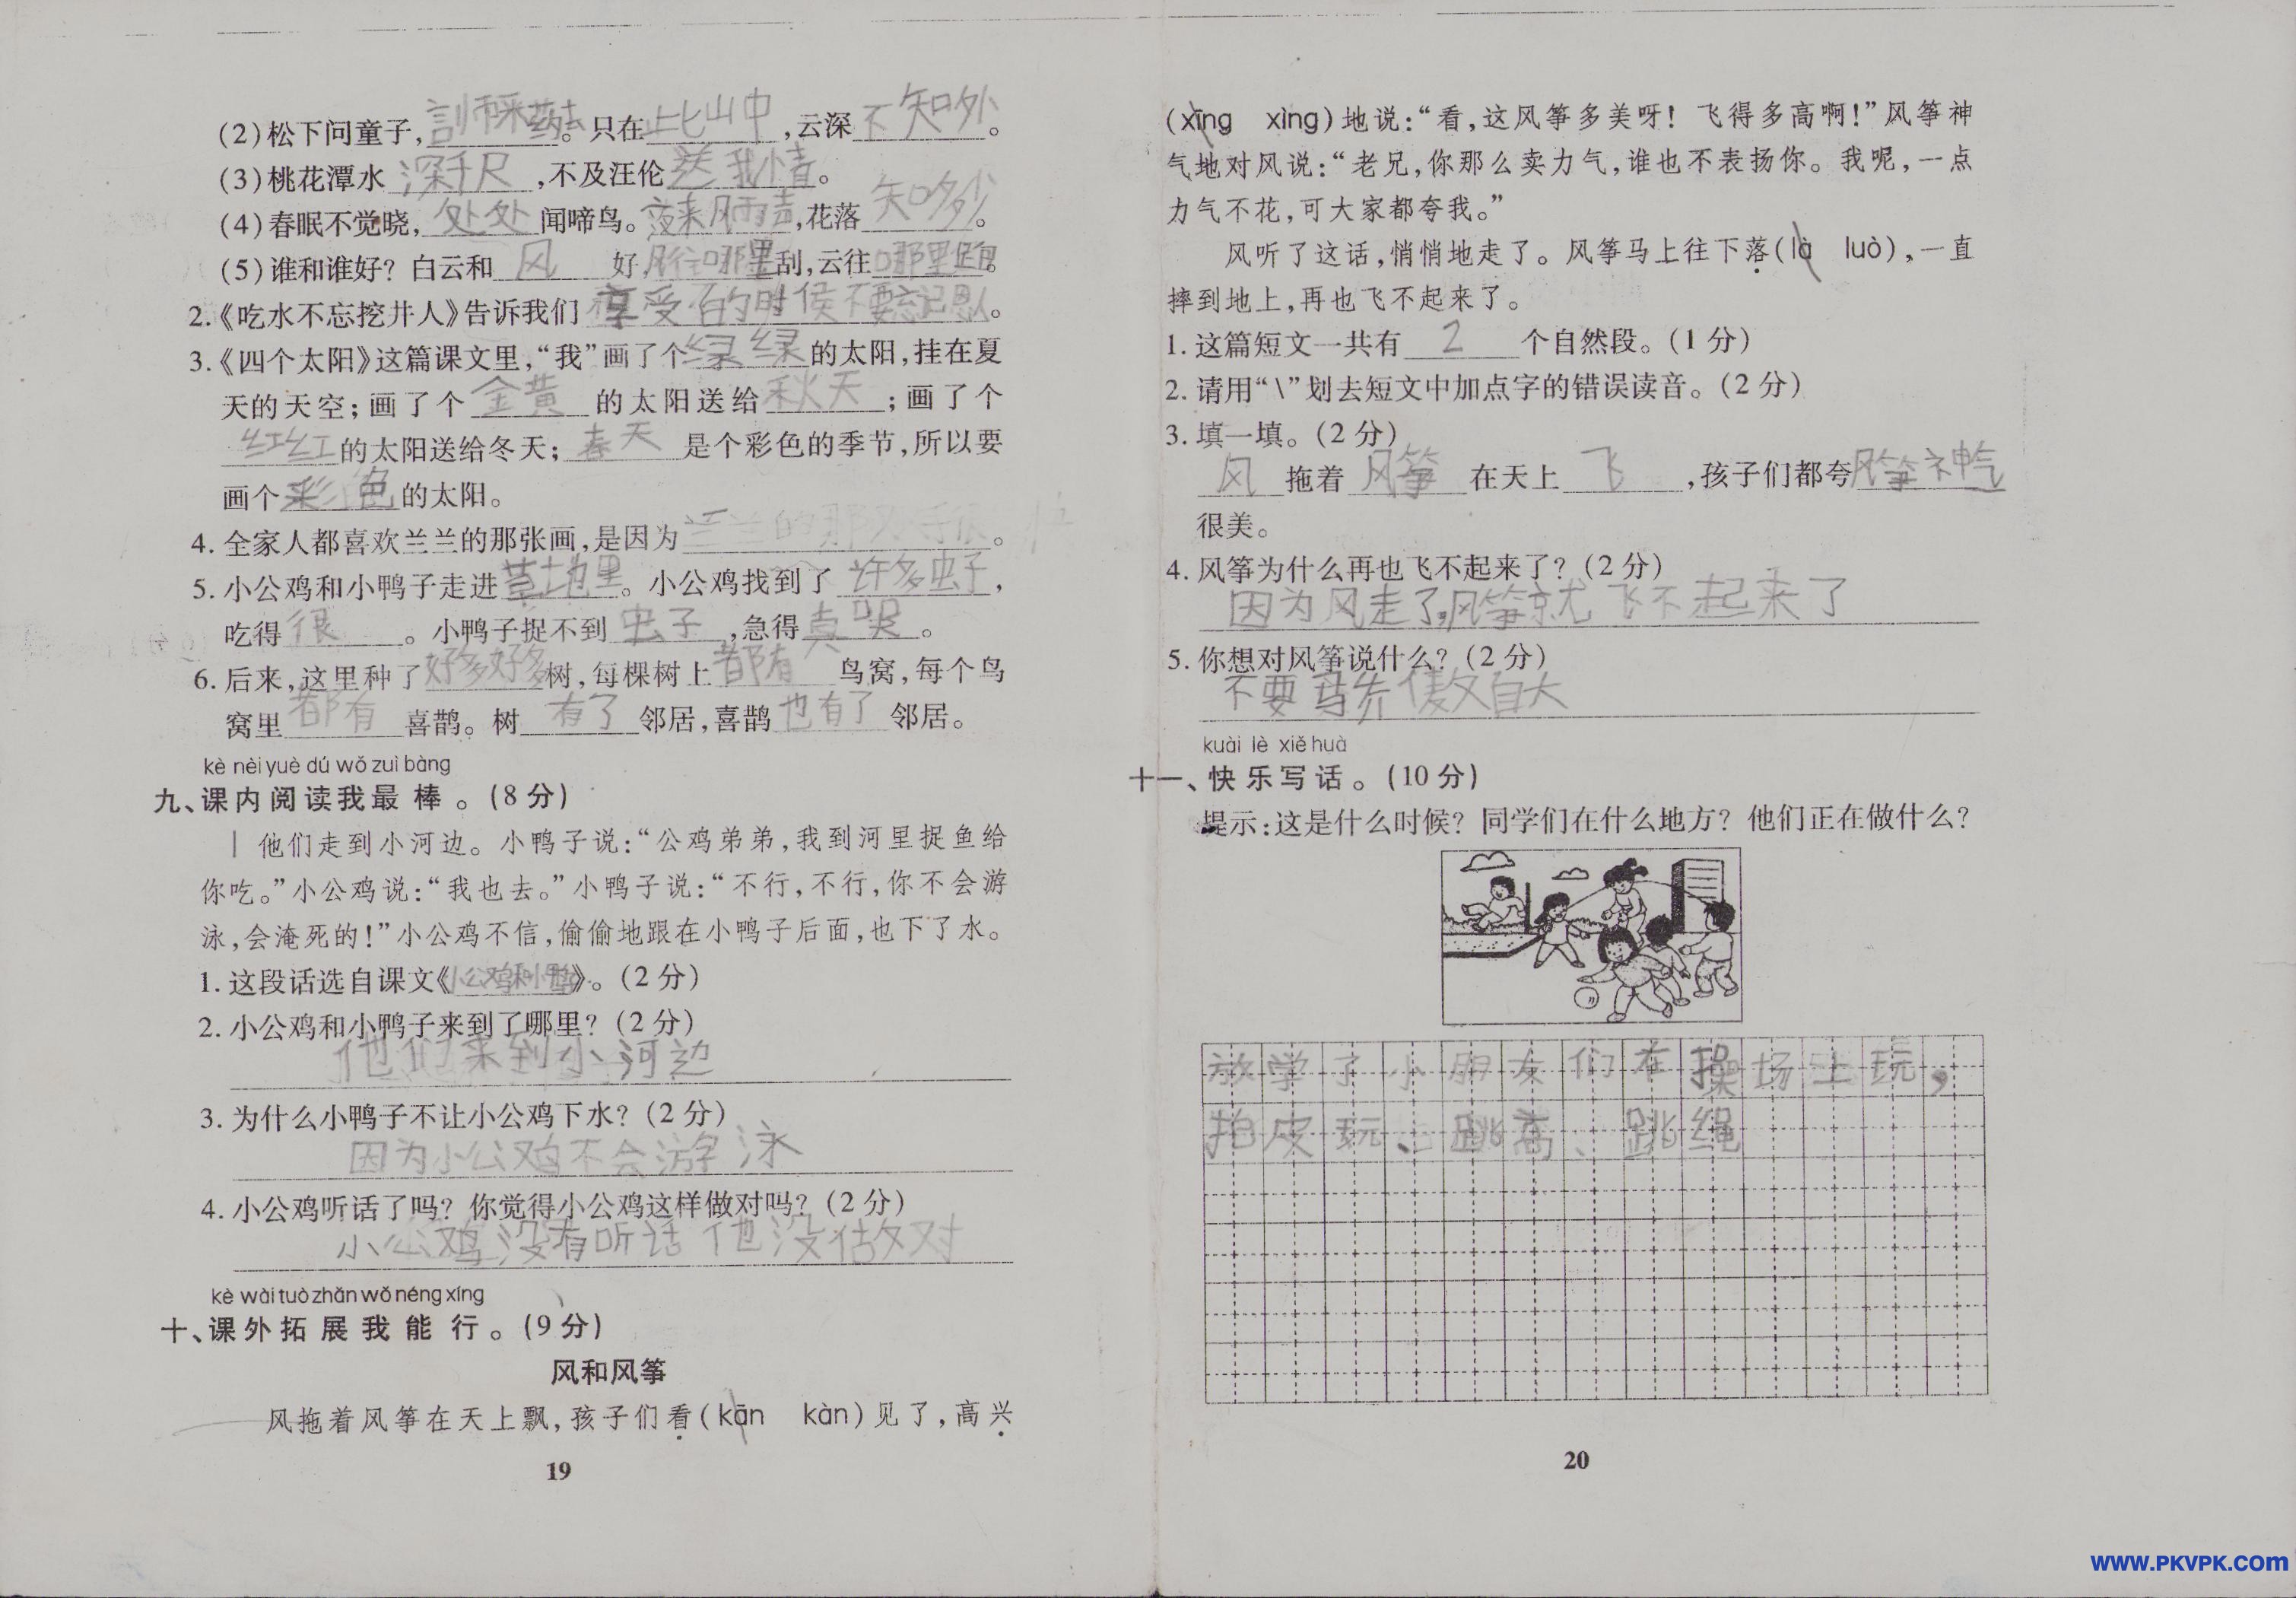 (2)松下问童子,言师采药去。只在此山中,云深不知处。
(3)桃花潭水深千尺,不及汪伦送我情。
(4)春眠不觉晓,处处闻啼鸟。夜来风雨声,花落知多少。
(5)谁和谁好?白云和风好,风往哪里刮,云往哪里跑。
2.《吃水不忘挖井人》告诉我们享受的时候不要忘记恩人。
3.《四个太阳》这篇课文里,“我”画了个绿绿的太阳,挂在夏
天的天空;画了个金黄的太阳送给秋天;画了个
红红的太阳送给冬天;春天是个彩色的季节,所以要
画个彩色的太阳。
4. 全家人都喜欢兰兰的那张画,是因为兰兰的那。
5. 小公鸡和小鸭子走进草地里。小公鸡找到了许多虫子,
吃得很。小鸭子捉不到虫子,急得直哭。
6. 后来,这里种了好多好多树,每棵树上都有鸟窝,每个鸟
窝里都有喜鹊。树有了邻居,喜鹊也有了邻居。
kè nèi yuè dú wǒ zuì bàng
九、课内阅读我最棒。(8分)
他们走到小河边。小鸭子说:“公鸡弟弟,我到河里捉鱼给
你吃。”小公鸡说:“我也去。”小鸭子说:“不行,不行,你不会游
泳,会淹死的!”小公鸡不信,偷偷地跟在小鸭子后面,也下了水。
1. 这段话选自课文《小公鸡和小鸭子》。(2分)
2. 小公鸡和小鸭子来到了哪里?(2分)
他们来到小河边
3. 为什么小鸭子不让小公鸡下水?(2分)
因为小公鸡不会游泳
4. 小公鸡听话了吗?你觉得小公鸡这样做对吗?(2分)
小公鸡没有听话他没做对
kè wài tuò zhǎn wǒ néng xíng
十、课外拓展我能行。(9分)
风和风筝
风拖着风筝在天上飘,孩子们看(kān kàn)见了,高兴
19
(xīng xìng)地说:“看,这风筝多美呀!飞得多高啊!”风筝神
气地对风说:“老兄,你那么卖力气,谁也不表扬你。我呢,一点
力气不花,可大家都夸我。”
风听了这话,悄悄地走了。风筝马上往下落(là luò),一直
摔到地上,再也飞不起来了。
1. 这篇短文一共有2个自然段。(1分)
2. 请用“\”划去短文中加点字的错误读音。(2分)
3. 填一填。(2分)
风拖着风筝在天上飞,孩子们都夸风筝神气
很美。
4. 风筝为什么再也飞不起来了?(2分)
因为风走了,风筝就飞不起来了
5. 你想对风筝说什么?(2分)
不要骄傲自大
kuài lè xiě huà
十一、快乐写话。(10分)
提示:这是什么时候?同学们在什么地方?他们正在做什么?
放学了小朋友们在操场上玩,
拍皮玩、跳高、跳绳
20
www.PKVPK.com